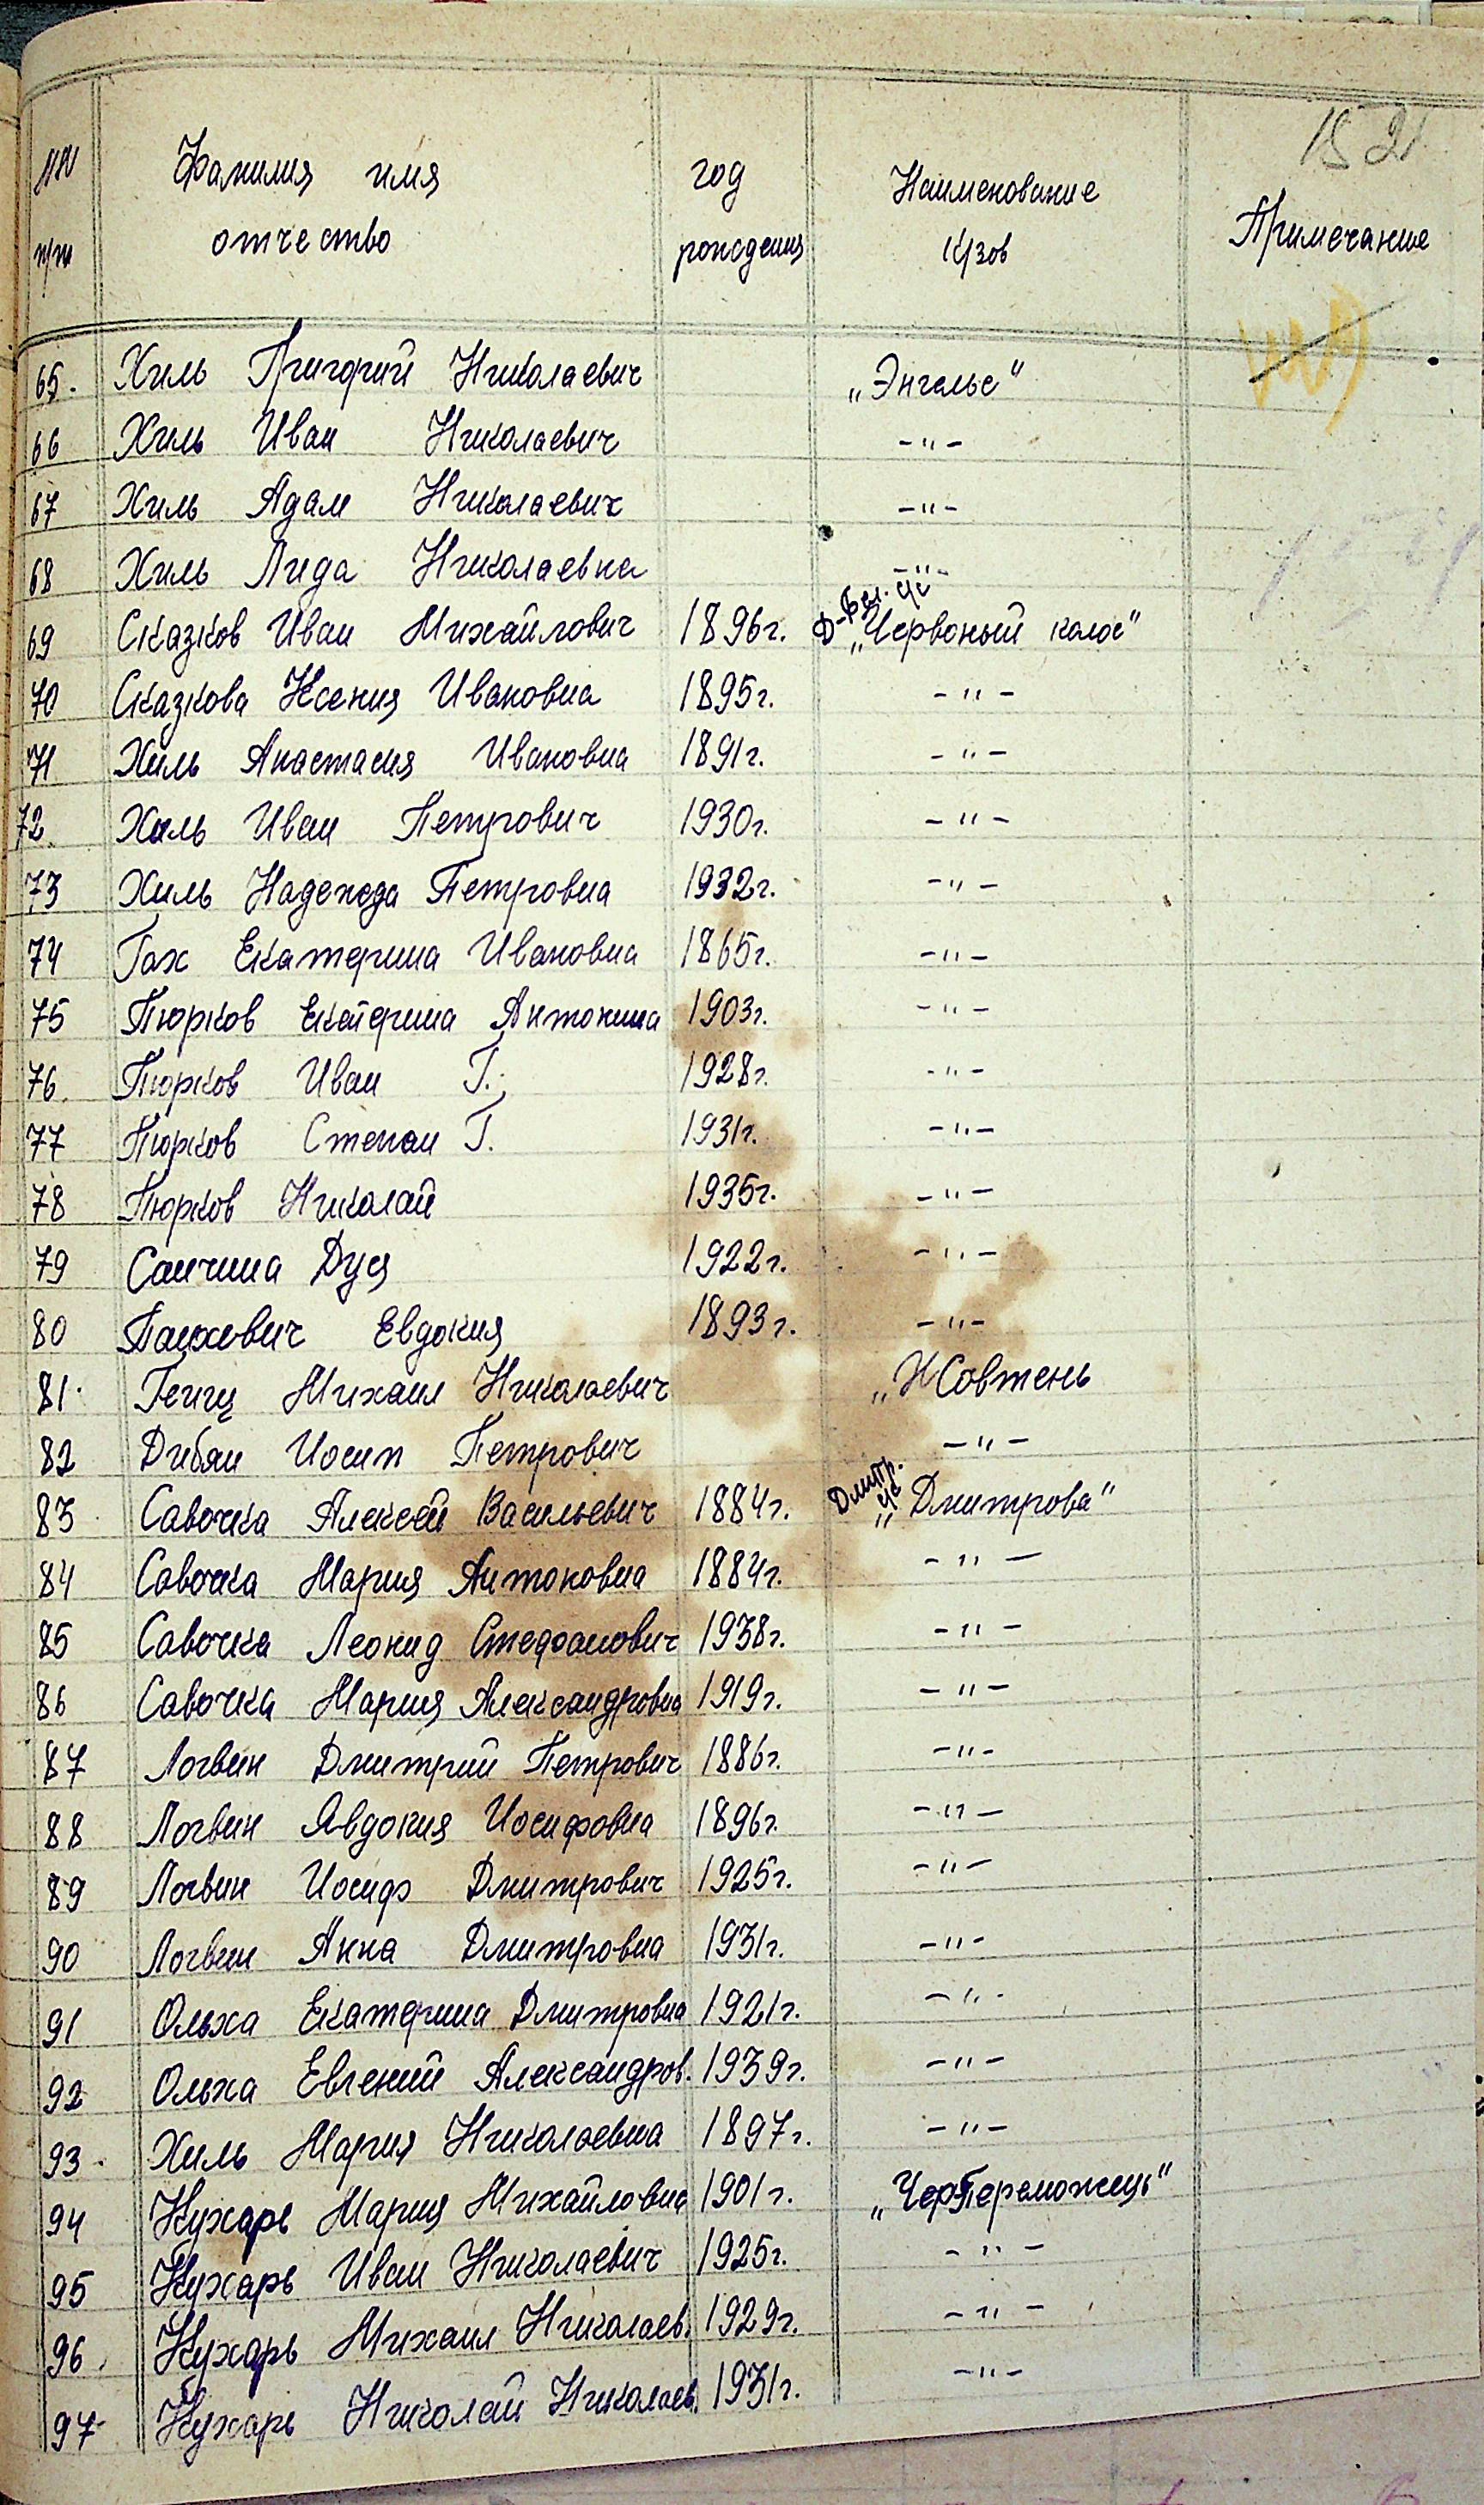 15 21
№№ Фамилия имя год Наименование Примечание
п/п отчество рождения к/зов
65. Хиль Григорий Николаевич „Энгельс"
66 Хиль Иван Николаевич -"-
67 Хиль Адам Николаевич -"-
68 Хиль Лида Николаевна -"-
69 Сказков Иван Михайлович 1896г. „Червоный колос"
70 Сказкова Ксения Ивановна 1895г. -"-
71 Хиль Анастасия Ивановна 1891г. -"-
72. Хиль Иван Петрович 1930г. -"-
73 Хиль Надежда Петровна 1932г. -"-
74 Гах Екатерина Ивановна 1865г. -"-
75 Пюрков Екатерина Антонина 1903г. -"-
76. Пюрков Иван Г. 1928г. -"-
77 Пюрков Степан Г. 1931г. -"-
78 Пюрков Николай 1935г. -"-
79 Санчина Дуся 1922г. -"-
80 Панхевич Евдокия 1893г. -"-
81. Генц Михаил Николаевич „Жовтень
82 Дибян Иосип Петрович -"-
Дмитр.
83 Савочка Алексей Васильевич 1884г. „Дмитрова"
84 Савочка Мария Антоновна 1884г. -"-
85 Савочка Леонид Стефанович 1938г. -"-
86 Савочка Мария Александровна 1919г. -"-
87 Логвин Дмитрий Петрович 1886г. -"-
88 Логвин Явдокия Иосифовна 1896г. -"-
89 Логвин Иосиф Дмитрович 1925г. -"-
90 Логвин Анна Дмитровна 1931г. -"-
91 Ольха Екатерина Дмитровна 1921г. -"-
92 Ольха Евгений Александров. 1939г. -"-
93. Хиль Мария Николаевна 1897г. -"-
94 Кухарь Мария Михайловна 1901г. „Черпереможець"
95 Кухарь Иван Николаевич 1925г. -"-
96. Кухарь Михаил Николаев. 1929г. -"-
97. Кухарь Николай Николаев. 1931г. -"-